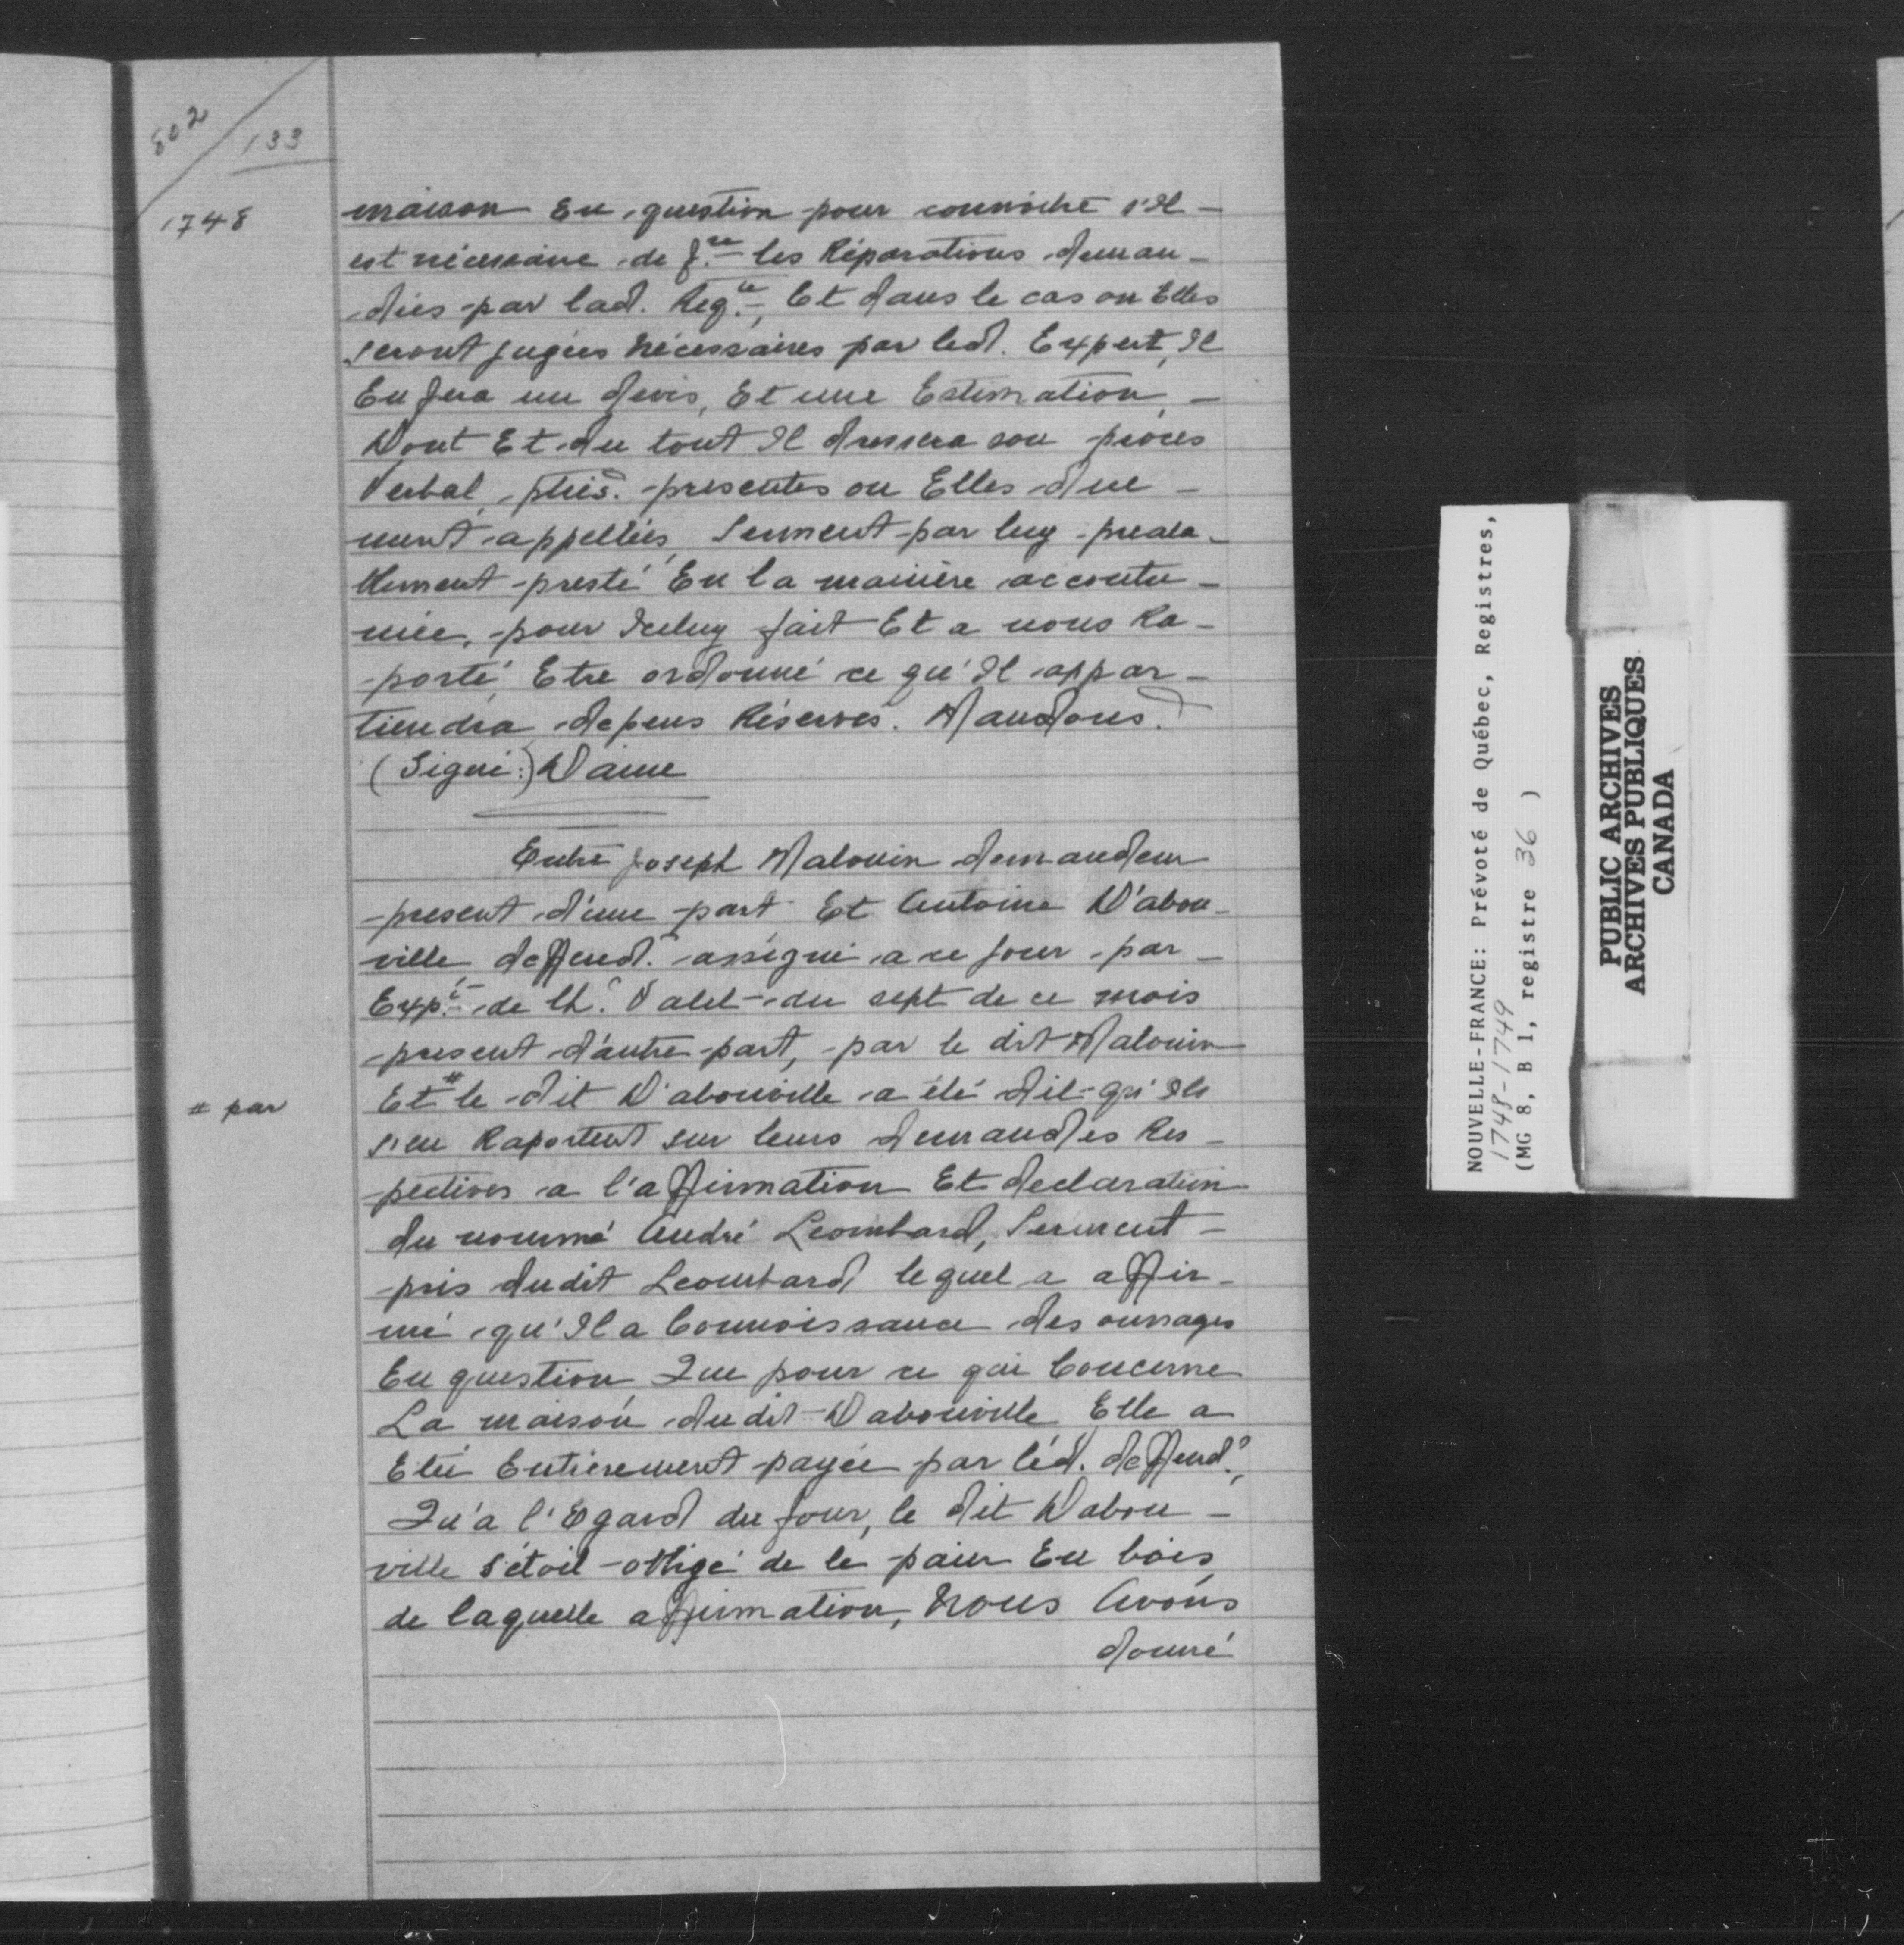 802 / 133
1748
maison En question pour connoitre s'Il -
est nécessaire de f.re les Réparations deman -
dées par lad. Req.te, Et dans le cas ou Elles
seront jugées nécessaires par led. Expert, Il
En fera un devis, Et une Estimation, -
Dont Et du tout Il dressera son procès
Verbal, pties. presentes ou Elles due -
ment appellées, Serment par luy préala -
blement presté En la manière accoutu -
mée, pour Iceluy fait Et a nous Ra -
porté, Etre ordonné ce qu'Il appar -
tiendra depens Réservés. Mandons.
(Signé:) Daine
Entre Joseph Malouin demandeur
present d'une part Et Antoine D'abou -
ville deffend.r assigné a ce jour par -
Exp.t de Ch. Valet du sept de ce mois
present d'autre part, par le dit Malouin
Et # le dit D'abouville a été dit qu'Ils
s'en Raportent sur leurs demandes Res -
pectives a l'affirmation Et declaration
du nommé André Leombard, Serment -
pris dudit Leombard lequel a affir -
mé qu'Il a Connoissance des ouvrages
En question Que pour ce qui Concerne
La maison dudit Dabouville Elle a
Eté Entièrement payée par led. deffend.r,
Qu'a l'Egard du four, le dit Dabou -
ville s'étoit obligé de le paier En bois,
de laquelle affirmation, Nous Avons
donné
# par
NOUVELLE-FRANCE: Prévoté de Québec, Registres,
1748-1749
(MG 8, B 1, registre 36 )
PUBLIC ARCHIVES
ARCHIVES PUBLIQUES
CANADA